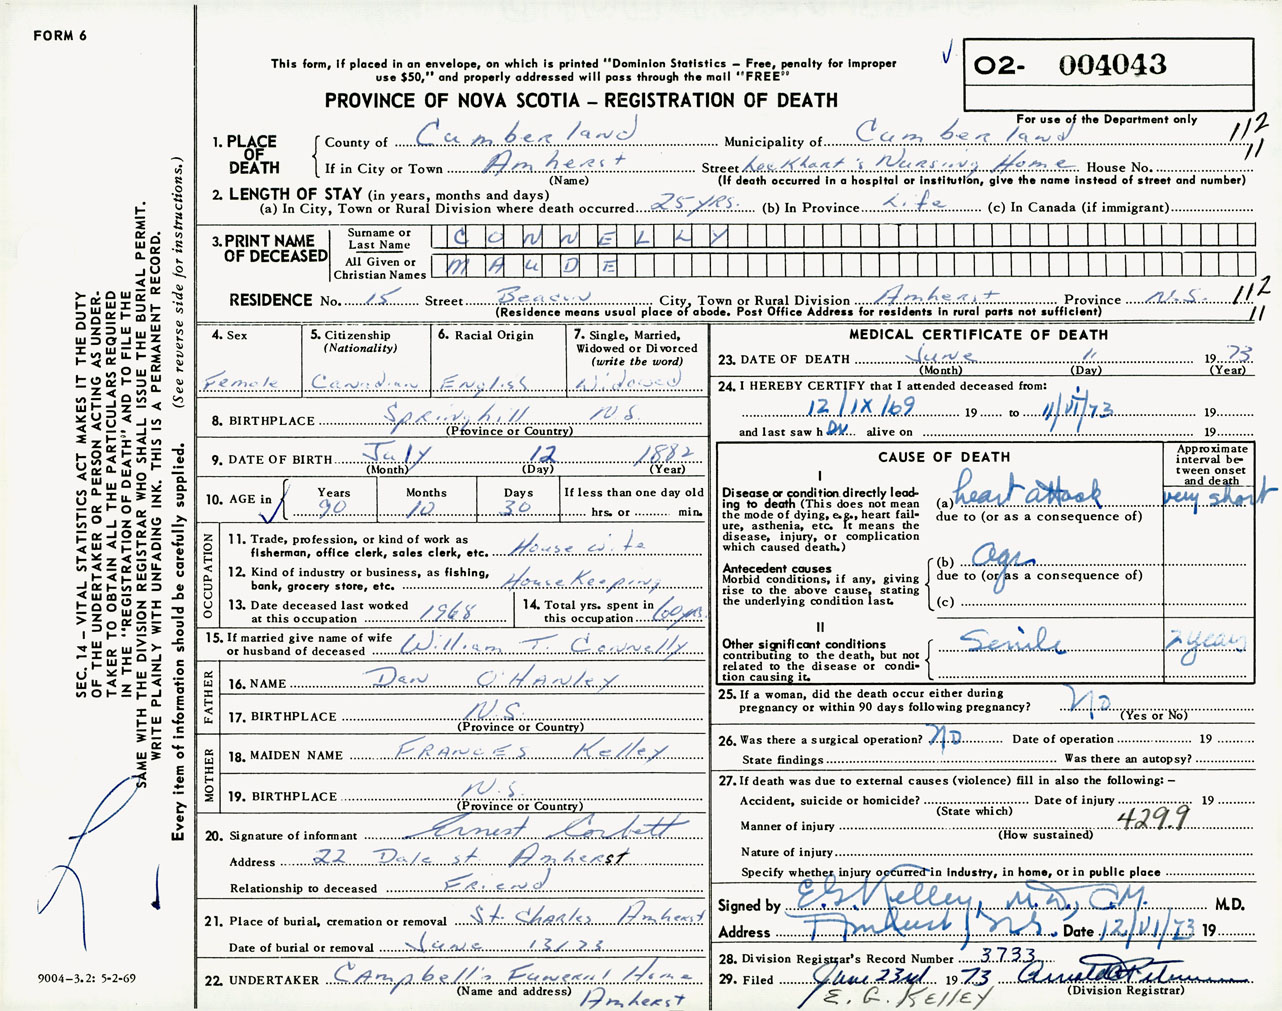 FORM 6
This form, if placed in an envelope, on which is printed "Dominion Statistics – Free, penalty for improper
use $50," and properly addressed will pass through the mail "FREE"
PROVINCE OF NOVA SCOTIA – REGISTRATION OF DEATH
02- 004043
For use of the Department only
112
11
1. PLACE OF DEATH
County of Cumberland Municipality of Cumberland
If in City or Town Amherst Street LocKhart's Nursing Home House No.
(Name) (If death occurred in a hospital or institution, give the name instead of street and number)
2. LENGTH OF STAY (in years, months and days)
(a) In City, Town or Rural Division where death occurred 25 yrs. (b) In Province Life (c) In Canada (if immigrant)
3. PRINT NAME OF DECEASED
Surname or Last Name CONNELLY
All Given or Christian Names MAUDE
RESIDENCE No. 15 Street Beacon City, Town or Rural Division Amherst Province N.S. 112
(Residence means usual place of abode. Post Office Address for residents in rural parts not sufficient) 11
4. Sex Female
5. Citizenship (Nationality) Canadian
6. Racial Origin English
7. Single, Married, Widowed or Divorced (write the word) Widowed
8. BIRTHPLACE Springhill N.S.
(Province or Country)
9. DATE OF BIRTH July 12 1882
(Month) (Day) (Year)
10. AGE in Years 90 Months 10 Days 30 If less than one day old hrs. or min.
OCCUPATION
11. Trade, profession, or kind of work as
fisherman, office clerk, sales clerk, etc. House wife
12. Kind of industry or business, as fishing,
bank, grocery store, etc. HouseKeeping
13. Date deceased last worked
at this occupation 1968
14. Total yrs. spent in
this occupation 60 yrs.
15. If married give name of wife
or husband of deceased William T. Connelly
FATHER
16. NAME Dan O'Hanley
17. BIRTHPLACE N.S.
(Province or Country)
MOTHER
18. MAIDEN NAME FRANCES Kelley
19. BIRTHPLACE N.S.
(Province or Country)
20. Signature of informant Ernest Corbett
Address 22 Dale st. Amherst
Relationship to deceased Friend
21. Place of burial, cremation or removal St. Charles Amherst
Date of burial or removal June 13/73
22. UNDERTAKER Campbell's Funeral Home
(Name and address) Amherst
MEDICAL CERTIFICATE OF DEATH
23. DATE OF DEATH June 11 1973
(Month) (Day) (Year)
24. I HEREBY CERTIFY that I attended deceased from:
12/IX/69 19 to 11/VI/73 19
and last saw h er alive on 19
CAUSE OF DEATH
Approximate interval between onset and death
I
Disease or condition directly lead-
ing to death (This does not mean
the mode of dying, e.g., heart fail-
ure, asthenia, etc. It means the
disease, injury, or complication
which caused death.)
(a) heart attack very short
due to (or as a consequence of)
Antecedent causes
Morbid conditions, if any, giving
rise to the above cause, stating
the underlying condition last.
(b) Age
due to (or as a consequence of)
(c)
II
Other significant conditions
contributing to the death, but not
related to the disease or condi-
tion causing it.
Senile 2 years
25. If a woman, did the death occur either during
pregnancy or within 90 days following pregnancy? No
(Yes or No)
26. Was there a surgical operation? No Date of operation 19
State findings Was there an autopsy?
27. If death was due to external causes (violence) fill in also the following: –
Accident, suicide or homicide? Date of injury 19
(State which)
Manner of injury 429.9
(How sustained)
Nature of injury
Specify whether injury occurred in industry, in home, or in public place
Signed by E.G. Kelley, M.D., C.M. M.D.
Address Amherst, N.S. Date 12/VI/73 19
28. Division Registrar's Record Number 3733
29. Filed June 23rd 1973
(Division Registrar)
E. G. KELLEY
SEC. 14 – VITAL STATISTICS ACT MAKES IT THE DUTY
OF THE UNDERTAKER OR PERSON ACTING AS UNDER-
TAKER TO OBTAIN ALL THE PARTICULARS REQUIRED
IN THE "REGISTRATION OF DEATH" AND TO FILE THE
SAME WITH THE DIVISION REGISTRAR WHO SHALL ISSUE THE BURIAL PERMIT.
WRITE PLAINLY WITH UNFADING INK. THIS IS A PERMANENT RECORD.
Every item of information should be carefully supplied. (See reverse side for instructions.)
9004-3.2: 5-2-69